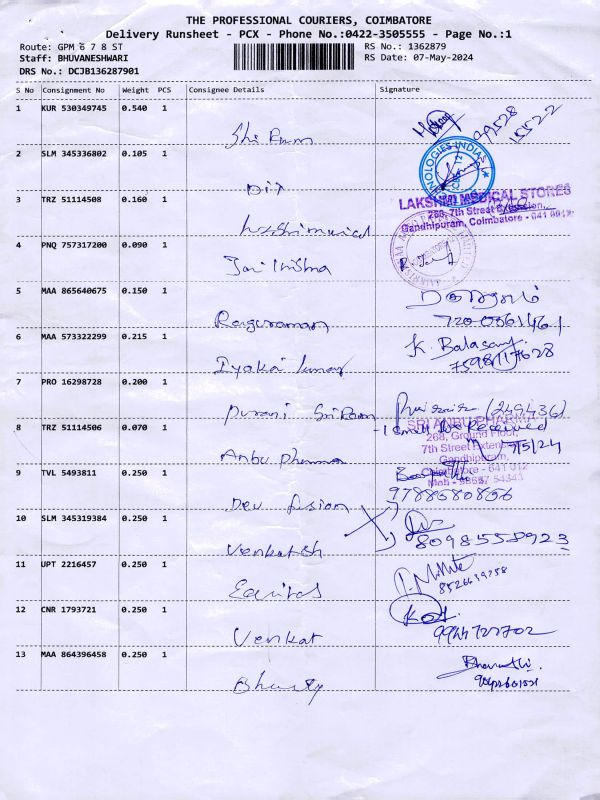 THE PROFESSIONAL COURIERS, COIMBATORE
Delivery Runsheet - PCX - Phone No.:0422-3505555 - Page No.:1
Route: GPM 6 7 8 ST
RS No.: 1362879
Staff: BHUVANESHWARI
RS Date: 07-May-2024
DRS No.: DCJB136287901
S No Consignment No Weight PCS Consignee Details Signature
1 KUR 530349745 0.540 1
99528
15522
Shri Ram
2 SLM 345336802 0.105 1
NOLOGIES INDIA
3 TRZ 51114508 0.160 1
LAKSHMI MEDICAL STORES
268, 7th Street Extension,
Gandhipuram, Coimbatore - 641 012.
4 PNQ 757317200 0.090 1
Jai Krishna
5 MAA 865640675 0.150 1
Raguraman
7200361461
6 MAA 573322299 0.215 1
K. Balasamy
7598117628
Iyakai Kumar
7 PRO 16298728 0.200 1
Purani Sri Ram
(249436)
8 TRZ 51114506 0.070 1
- 1 small Box Received
SRI ANBU PHARMA
268, Ground Floor,
7th Street Extension,
Gandhipuram,
7/5/24
Anbu Pharma
9 TVL 5493811 0.250 1
Coimbatore - 641 012
Mob - 98657 54343
9788580856
Dev fusion
10 SLM 345319384 0.250 1
8098558923
Venkatsh
11 UPT 2216457 0.250 1
8526639758
Equitas
12 CNR 1793721 0.250 1
9944727702
Venkat
13 MAA 864396458 0.250 1
Bharathi.